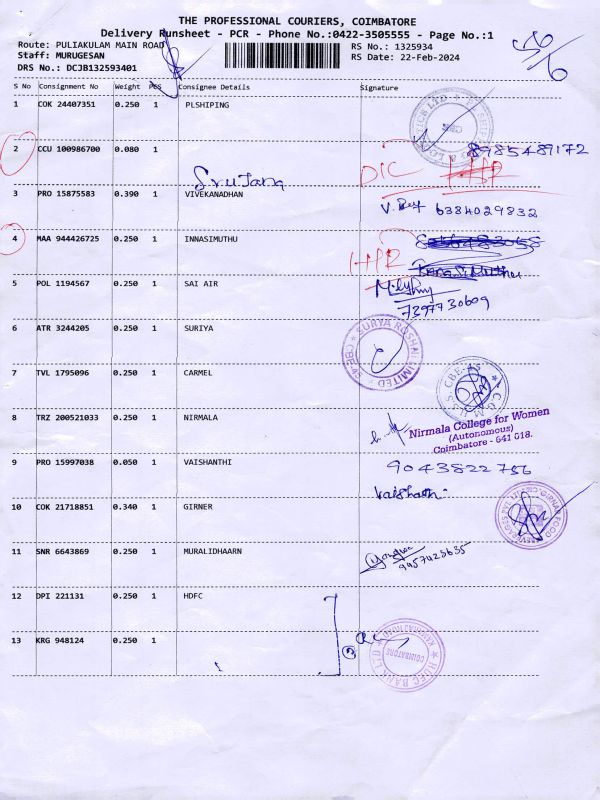 THE PROFESSIONAL COURIERS, COIMBATORE
Delivery Runsheet - PCR - Phone No.:0422-3505555 - Page No.:1
Route: PULIAKULAM MAIN ROAD RS No.: 1325934
Staff: MURUGESAN RS Date: 22-Feb-2024
DRS No.: DCJB132593401
S No Consignment No Weight PCS Consignee Details Signature
1 COK 24407351 0.250 1 PLSHIPING
2 CCU 100986700 0.080 1 8985489172
DIC
3 PRO 15875583 0.390 1 VIVEKANADHAN
6384029832
4 MAA 944426725 0.250 1 INNASIMUTHU
5 POL 1194567 0.250 1 SAI AIR
7397730609
6 ATR 3244205 0.250 1 SURIYA
SURYA ROSHNI LIMITED CBE-45
7 TVL 1795096 0.250 1 CARMEL
CBE-45
8 TRZ 200521033 0.250 1 NIRMALA
Nirmala College for Women
(Autonomous)
Coimbatore - 641 018.
9 PRO 15997038 0.050 1 VAISHANTHI
9043822756
10 COK 21718851 0.340 1 GIRNER
11 SNR 6643869 0.250 1 MURALIDHAARN
12 DPI 221131 0.250 1 HDFC
13 KRG 948124 0.250 1
HDFC BANK LTD
COIMBATORE